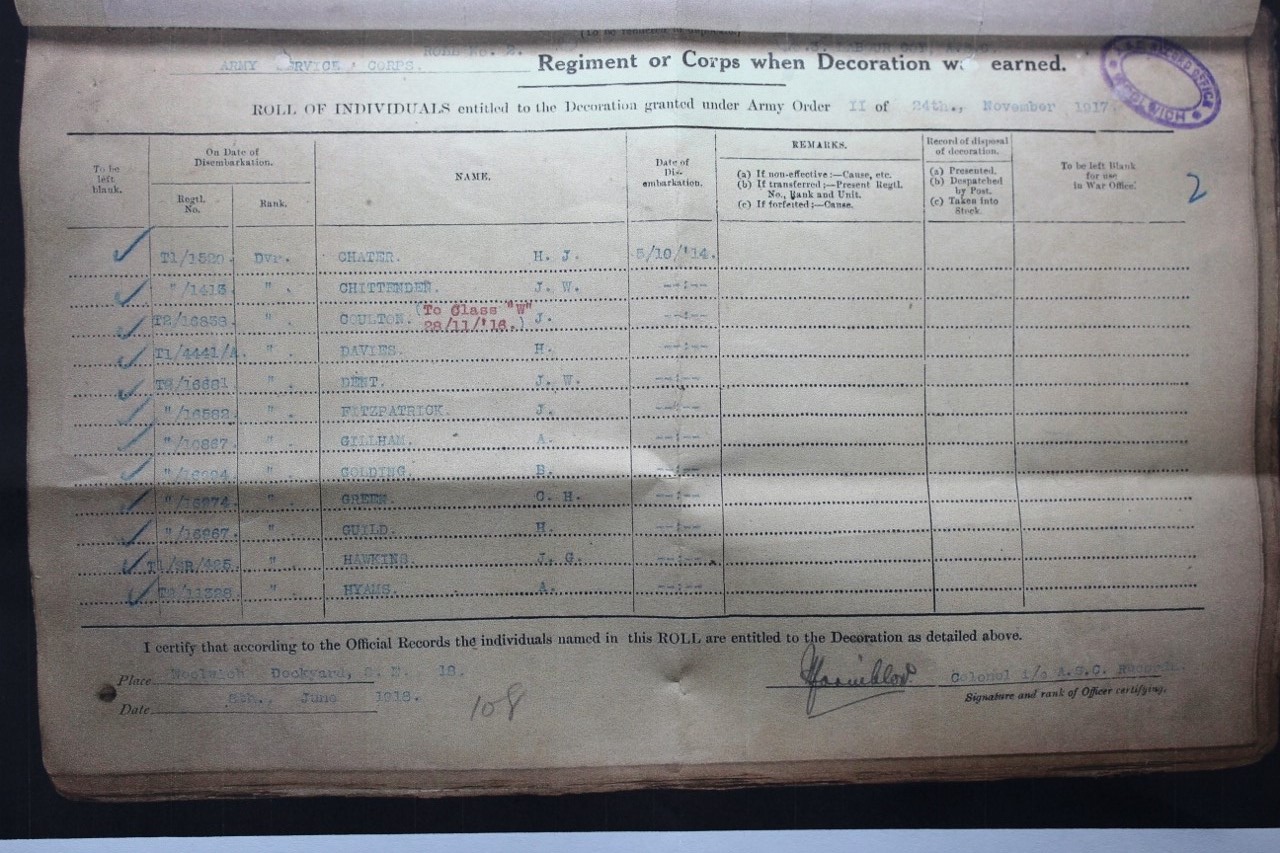 (To be rendered in duplicate)
ROLL No. 2.
ARMY SERVICE CORPS. Regiment or Corps when Decoration w earned.
RECORD OFFICE WOOLWICH
ROLL OF INDIVIDUALS entitled to the Decoration granted under Army Order II of 24th., November 1917.
To be left blank.
On Date of Disembarkation.
Regtl. No.
Rank.
NAME.
Date of Dis-embarkation.
REMARKS.
(a) If non-effective:—Cause, etc.
(b) If transferred;—Present Regtl. No., Rank and Unit.
(c) If forfeited;—Cause.
Record of disposal of decoration.
(a) Presented.
(b) Despatched by Post.
(c) Taken into Stock.
To be left blank for use in War Office.
2
T1/1520. Dvr. CHATER. H. J. 5/10/'14.
"/1413. " . CHITTENDEN. J. W. --:--
T2/16838. " . COULTON. (To Class "W" 28/11/'16.) J. --:--
T1/4441/A. " . DAVIES. H. --:--
T2/16681 " . DENT. J. W. --:--
"/16582. " . FITZPATRICK. J. --:--
"/10867. " . GILLHAM. A. --:--
" . GOLDING. B. --:--
"/16974. " . GREEN. C. H. --:--
"/16967. " . GUILD. H. --:--
T1/SR/425. " . HAWKINS. J. G. --:--
T2/11328. " . HYAMS. A. --:--
I certify that according to the Official Records the individuals named in this ROLL are entitled to the Decoration as detailed above.
Place Woolwich Dockyard, S. E. 18.
Colonel i/c A.S.C. Records.
Signature and rank of Officer certifying.
Date 8th., June 1918.
108